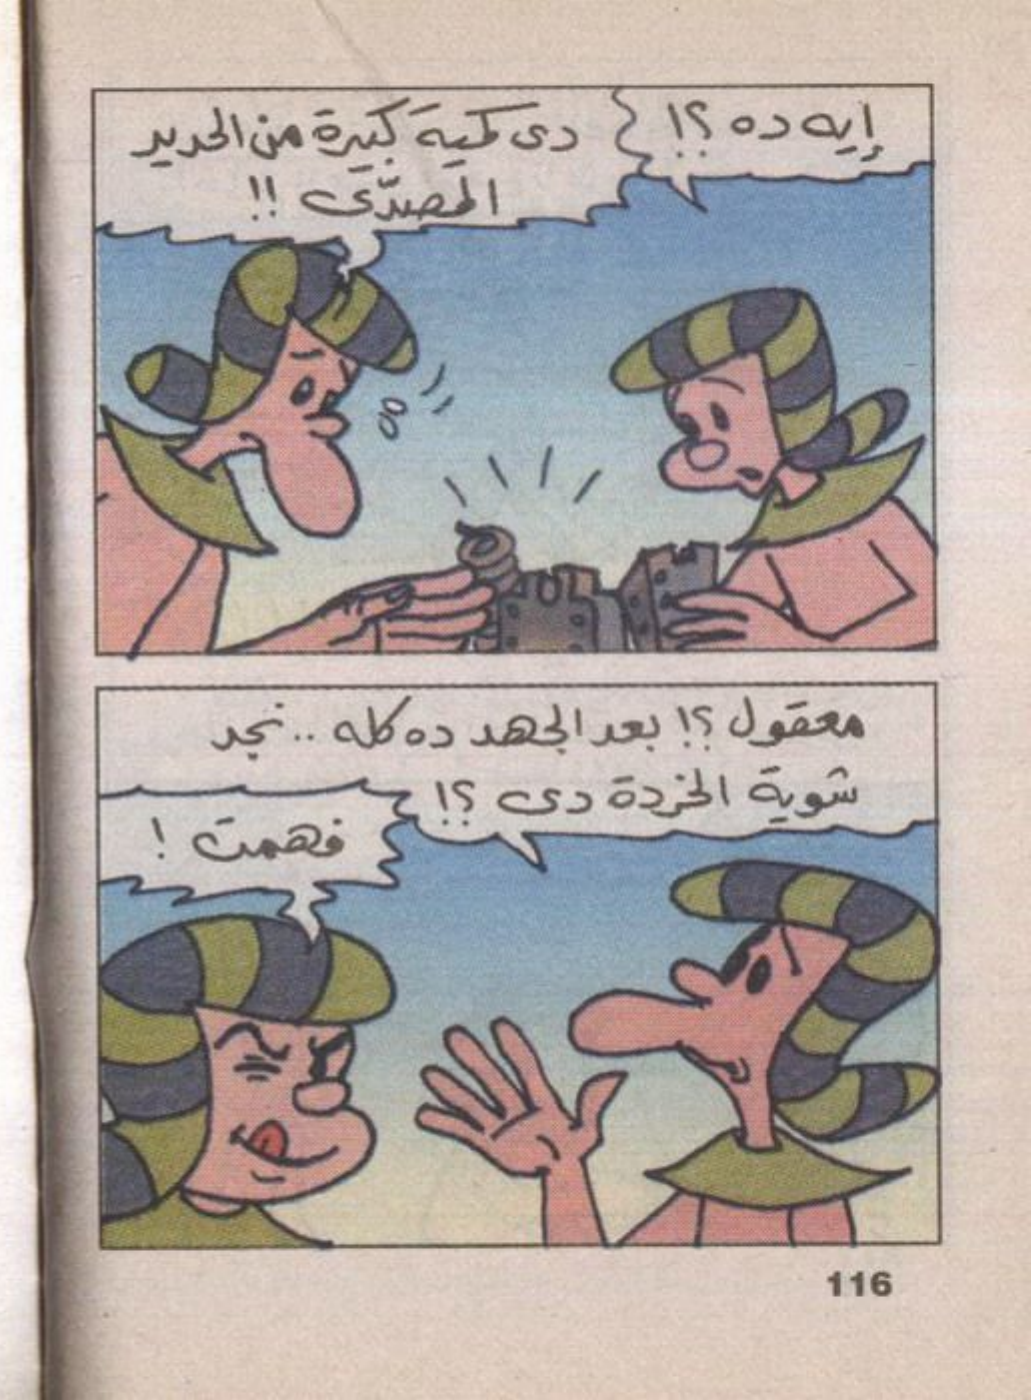 إيه ده ؟!
دى كمية كبيرة من الحديد
المصدّى !!
معقول ؟! بعد الجهد ده كله .. نجد
شوية الخردة دى ؟!
فهمت !
116